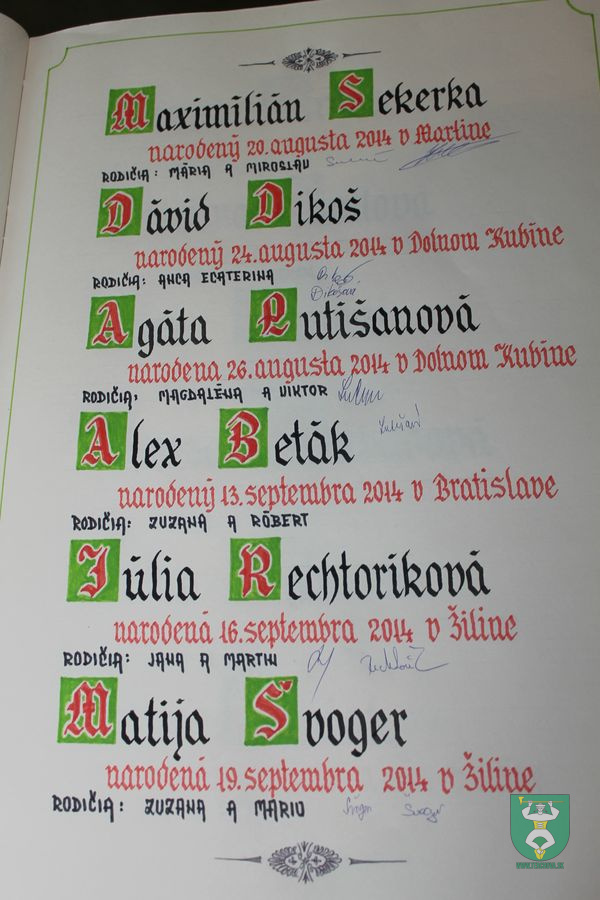 Maximilián Sekerka
narodený 20. augusta 2014 v Martine
RODIČIA: MÁRIA A MIROSLAV
Dávid Dikoš
narodený 24. augusta 2014 v Dolnom Kubíne
RODIČIA: ANCA ECATERINA
Agáta Lutišanová
narodena 26. augusta 2014 v Dolnom Kubíne
RODIČIA: MAGDALÉNA A VIKTOR
Alex Beták
narodený 13. septembra 2014 v Bratislave
RODIČIA: ZUZANA A RÓBERT
Júlia Rechtoríková
narodená 16. septembra 2014 v Žiline
RODIČIA: JANA A MARTIN
Matija Švoger
narodená 19. septembra 2014 v Žiline
RODIČIA: ZUZANA A MÁRIO
WWW.TERCHOVA.SK